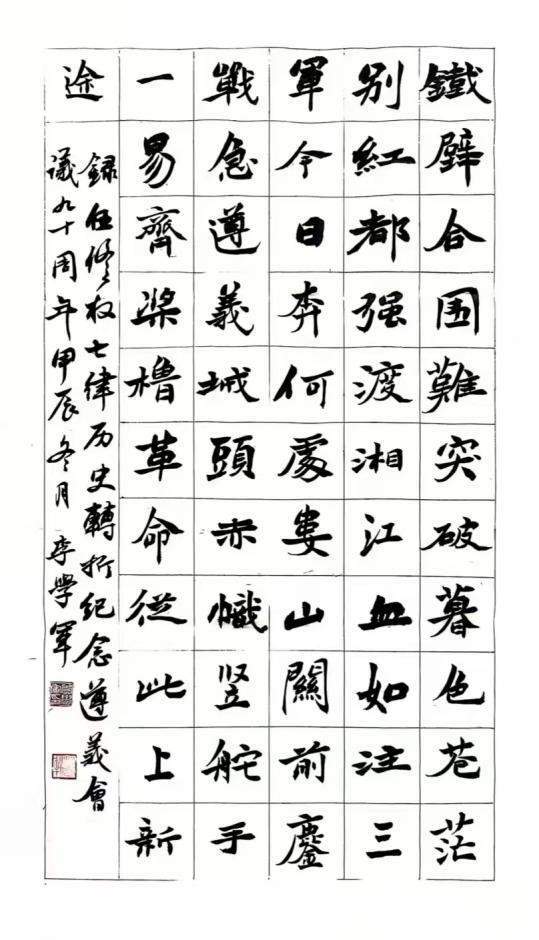 鐵壁合围難突破暮色苍茫
别紅都强渡湘江血如注三
軍今日奔何處婁山關前鏖
戰急遵義城頭赤幟竖舵手
一易齊槳櫓革命從此上新
途
録伍修权七律历史轉折纪念遵義會
議九十周年甲辰冬月李學軍